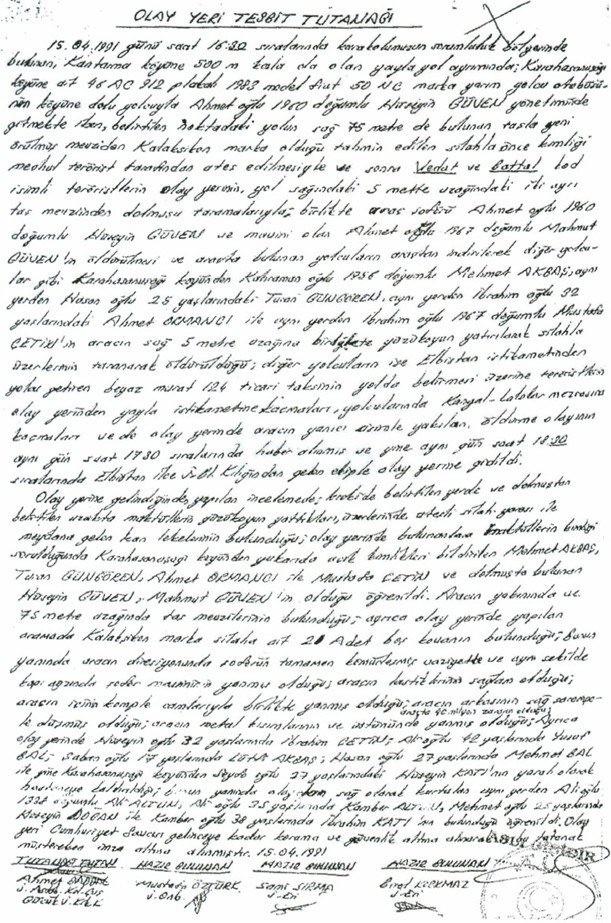 OLAY YERİ TESBİT TUTANAĞI
15.04.1991 günü saat 16:30 sıralarında karakolumuzun sorumluluk bölgesinde
bulunan; Kantarma köyüne 500 m kala da olan yayla yol ayrımında; Karahasanuşağı
köyüne ait 46 AC 912 plakalı 1983 model fiat 50 NC marka yarım yolcu otobüsü-
nün köyüne dolu yolcuyla Ahmet oğlu 1960 doğumlu Hüseyin GÜVEN yönetiminde
gitmekte iken, belirtilen noktadaki yolun sağ 75 metre de bulunan taşla yeni
örülmüş mevziden Kalaşnikon marka olduğu tahmin edilen silahla önce kimliği
meçhul terörist tarafından ateş edilmesiyle ve sonra Vedat ve Battal kod
isimli teröristlerin olay yerinin, yol sağındaki 5 mette uzağındaki iki ayrı
taş mevziinden dolmuşu taramalarıyla; birlikte araç şoförü Ahmet oğlu 1960
doğumlu Hüseyin GÜVEN ve mavini olan Ahmet oğlu 1967 doğumlu Mahmut
GÜVEN'in öldürülmesi ve araçta bulunan yolcuların araçtan indirilerek diğer yolcu-
lar gibi Karahasanuşağı köyünden Kahraman oğlu 1956 doğumlu Mehmet AKBAŞ, aynı
yerden Hasan oğlu 25 yaşlarındaki Turan GÜNGÖREN, aynı yerden İbrahim oğlu 32
yaşlarındaki Ahmet ORMANCI ile aynı yerden İbrahim oğlu 1967 doğumlu Mustafa
ÇETİN'in aracın sağ 5 metre uzağına birlikte yüzükoyun yatırılarak silahla
üzerlerinin taranarak öldürüldüğü; diğer yolcuların ise Elbistan istikametinden
yolcu getiren beyaz murat 124 ticari taksinin yolda belirmesi üzerine teröristlerin
olay yerinden yayla istikametine kaçmaları, yolcularında mezrasına
kaçmaları ve de olay yerinde aracın yanıcı yakılan, öldürme olayının
aynı gün saat 17:30 sıralarında haber alınmış ve yine aynı gün saat 18:30
sıralarında Elbistan ilçe J.Bl. K.lığından gelen ekiple olay yerine gidildi.
Olay yerine gelindiğinde, yapılan incelemede; krokide belirtilen yerde ve dolmuştan
belirtilen uzakta maktüllerin yüzükoyun yattıkları, üzerlerinde ateşli silah yarası ile
meydana gelen kan lekelerinin bulunduğu; olay yerinde bulunanlara maktüllerin kimliği
sorulduğunda Karahasanuşağı köyünden yukarıda açık kimlikleri bildirilen Mehmet AKBAŞ,
Turan GÜNGÖREN, Ahmet ORMANCI ile Mustafa ÇETİN ve dolmuşta bulunan
Hüseyin GÜVEN, Mahmut GÜVEN'in olduğu öğrenildi. Aracın yakınında ve
75 metre uzağında taş mevzilerinin bulunduğu; ayrıca olay yerinde yapılan
aramada Kalaşnikon marka silaha ait 21 Adet boş kovanın bulunduğu; bunun
yanında aracın direksiyonunda şoförün tamamen kömürleşmiş vaziyette ve aynı şekilde
kapı ağzında şoför mavininin yanmış olduğu; aracın lastiklerinin sağlam olduğu;
aracın içinin komple camlarıyla birlikte yanmış olduğu; aracın arkasının sağ şarampo-
le düşmüş olduğu; aracın metal kısımlarının ve üstününde yanmış olduğu; Ayrıca
olay yerinde Hüseyin oğlu 32 yaşlarında İbrahim ÇETİN; Ali oğlu 42 yaşlarında Yusuf
BAL; Şaban oğlu 17 yaşlarında AKBAŞ; Hasan oğlu 27 yaşlarında Mehmet BAL
ile yine Karahasanuşağı köyünden oğlu 27 yaşlarındaki Hüseyin KATI'nın yaralı olarak
hastaneye kaldırıldığı; bunun yanında olaydan sağ olarak kurtulan aynı yerden Ali oğlu
1338 doğumlu Ali ALTUN, Ali oğlu 35 yaşlarında Kamber ALTUN, Mehmet oğlu 25 yaşlarında
Hüseyin DOĞAN ile Kamber oğlu 38 yaşlarında İbrahim KATI'nın bulunduğu öğrenildi. Olay
yeri Cumhuriyet Savcısı gelinceye kadar koruma ve güvenlik altına alınarak işbu tutanak
müştereken imza altına alınmıştır. 15.04.1991
ASLI GİBİDİR
TUTANAĞI TUTAN HAZIR BULUNAN HAZIR BULUNAN HAZIR BULUNAN
Ahmet Mustafa ÖZTÜRK Sami SIRMA Birol KORKMAZ
J. Onb. J. Er J. Er